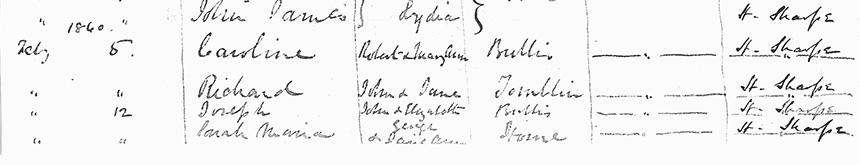 " " John James } Lydia } H- Sharpe
1860. "
Feby 5. Caroline Robert & Mary Ann Bullis — " — H- Sharpe
" " Richard John & Jane Tomblin — " — H- Sharpe
" 12 Joseph John & Elizabeth Bullis — " — H- Sharpe
" " Sarah Maria George & Jane Ann Horne — " — H- Sharpe